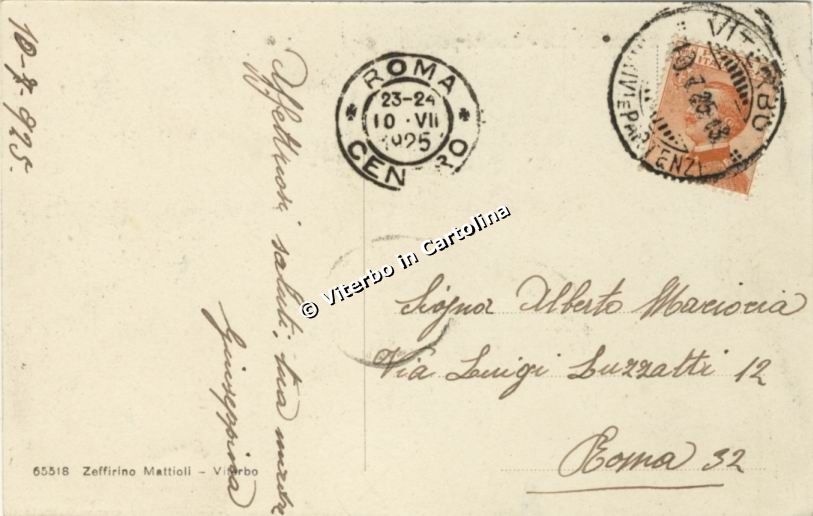 10-7-925.
Affettuosi saluti, tua madre
Giuseppina
ROMA
23-24
10·VII
1925
CENTRO
VITERBO
10.7.25.18
ARRIVI E PARTENZE
Signor Alberto Marioria
Via Luigi Luzzatti 12
Roma 32
65518 Zeffirino Mattioli – Viterbo
© Viterbo in Cartolina